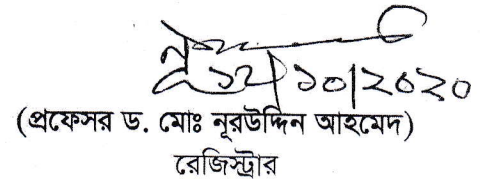 ১২/১০/২০২০
(প্রফেসর ড. মোঃ নূরউদ্দিন আহমেদ)
রেজিস্ট্রার